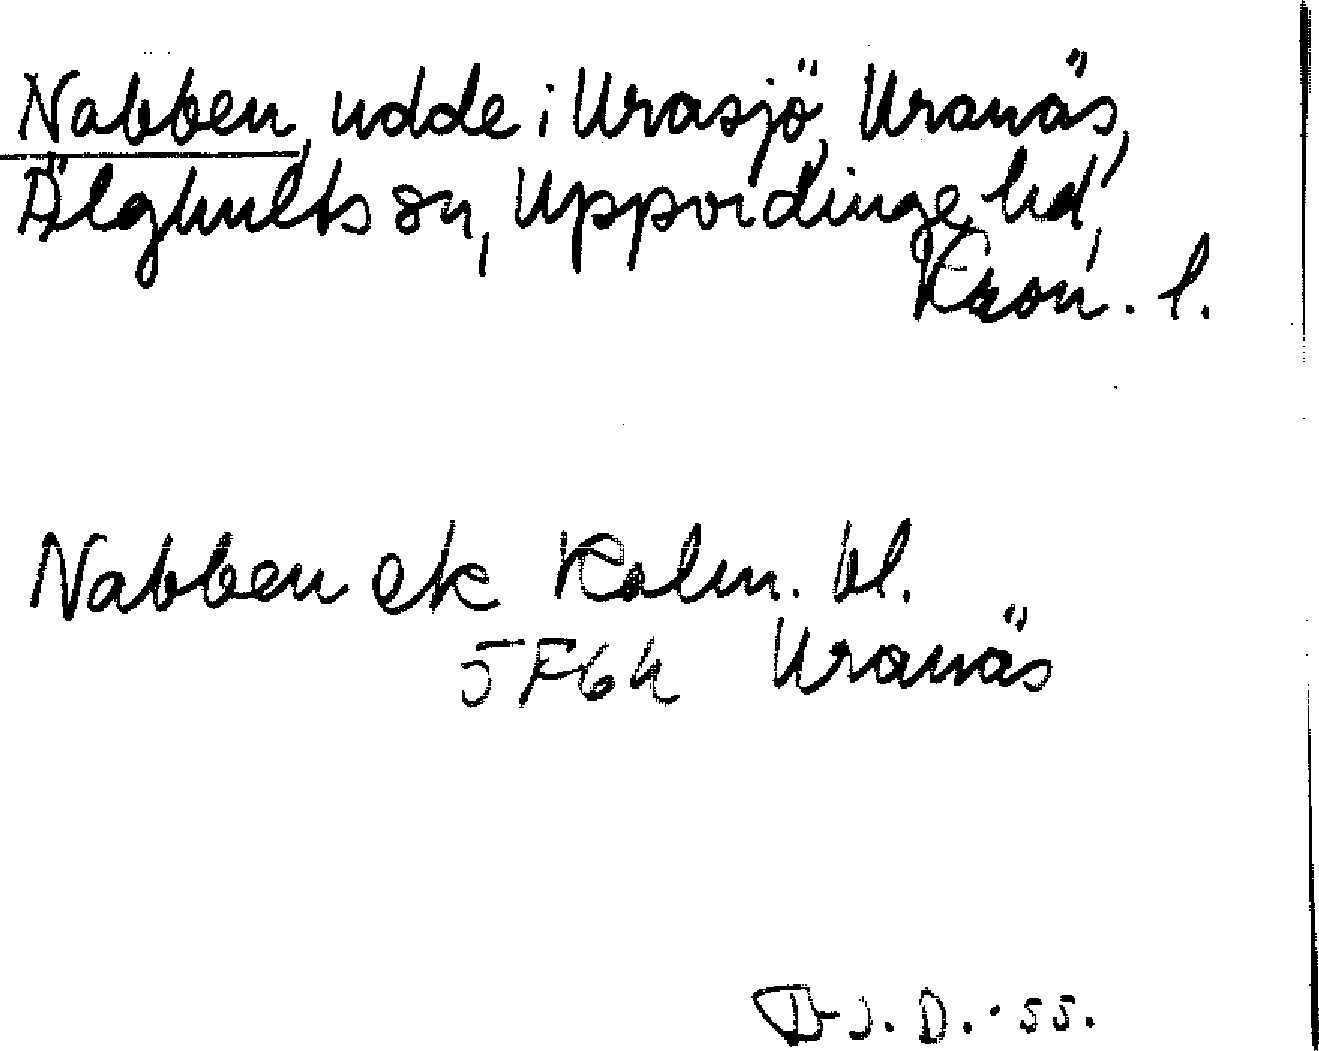 Nabben, udde i Urasjö, Uranäs,
Älghults sn, Uppvidinge hd,
Kron. l.
Nabben ek Kalm. bl.
5F6h Uranäs
J. D. 55.